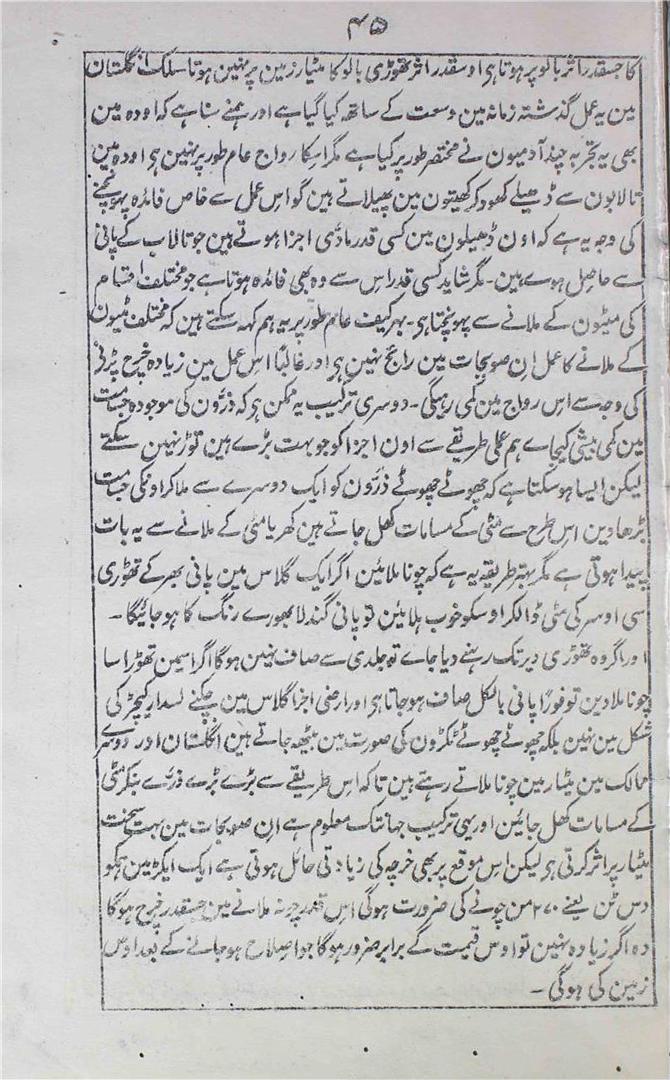 ۴۵
کا جسقدر اثر بالو پر ہوتا ہی اوسقدر اثر تھوڑی بالو کا مٹیار زمین پر نہین ہوتا سلک انگلستان
مین یہ عمل گذشتہ زمانہ مین وسعت کے ساتھ کیا گیا ہے اور ہمنے سنا ہے کہ اودہ مین
بھی یہ تجربہ چند آدمیون نے مختصر طور پر کیا ہے مگر اسکا رواج عام طور پر نہین ہی اودہ مین
تالابون سے ڈھیلے کھود کر کھیتون مین پھیلاتے ہین گو اس عمل سے خاص فائدہ پہونچنے
کی وجہ یہ ہے کہ اون ڈھیلون مین کسی قدر مادّی اجزا ہوتے ہین جو تالاب کے پانی
سے حاصل ہوے ہین ۔ مگر شاید کسی قدر اس سے وہ بھی فائدہ ہوتا ہے جو مختلف اقسام
کی مٹیون کے ملانے سے پہونچتا ہی ۔ بہر کیف عام طور پر یہ ہم کہہ سکتے ہین کہ مختلف مٹیون
کے ملانے کا عمل ان صوبجات مین رائج نہین ہی اور غالباً اس عمل مین زیادہ خرچ پڑنے
کی وجہ سے اس رواج مین کمی رہیگی ۔ دوسری ترکیب یہ ممکن ہی کہ ذرّون کی موجودہ جسامت
مین کمی بیشی کیجاے ہم عملی طریقے سے اون اجزا کو جو بہت بڑے ہین توڑ نہین سکتے
لیکن ایسا ہو سکتا ہے کہ چھوٹے چھوٹے ذرّون کو ایک دوسرے سے ملا کر اونکی جسامت
بڑھا دین اس طرح سے مٹی کے مسامات کھل جاتے ہین کھریا مٹی کے ملانے سے یہ بات
پیدا ہوتی ہے مگر بہتر طریقہ یہ ہے کہ چونا ملائین اگر ایک گلاس مین پانی بھر کے تھوڑی
سی اوسر کی مٹی ڈالکر اوسکو خوب ہلائین تو پانی گندلا بھورے رنگ کا ہو جائیگا ۔
اور اگر وہ تھوڑی دیر تک رہنے دیا جاے تو جلدی سے صاف نہین ہوگا اگر اسمین تھوڑا سا
چونا ملا دین تو فوراً پانی بالکل صاف ہو جاتا ہی اور ارضی اجزا گلاس مین چکنے لسدار کیچڑ کی
شکل مین نہین بلکہ چھوٹے چھوٹے ٹکڑون کی صورت مین بیٹھ جاتے ہین انگلستان اور دوسرے
ممالک مین مٹیار مین چونا ملاتے رہتے ہین تاکہ اس طریقے سے بڑے بڑے ذرّے بنکر مٹی
کے مسامات کھل جائین اور یہی ترکیب جہانتک معلوم ہے ان صوبجات مین بہت سخت
مٹیار پر اثر کرتی ہی لیکن اس موقع پر بھی خرچہ کی زیادتی حائل ہوتی ہے ایک ایکڑ مین ہمکو
دس ٹن یعنے ۲۷۰ من چونے کی ضرورت ہوگی اس قدر چونہ ملانے مین جسقدر خرچ ہوگا
وہ اگر زیادہ نہین تو اوس قیمت کے برابر ضرور ہوگا جو اصلاح ہو جانے کے بعد اوس
زمین کی ہوگی ۔